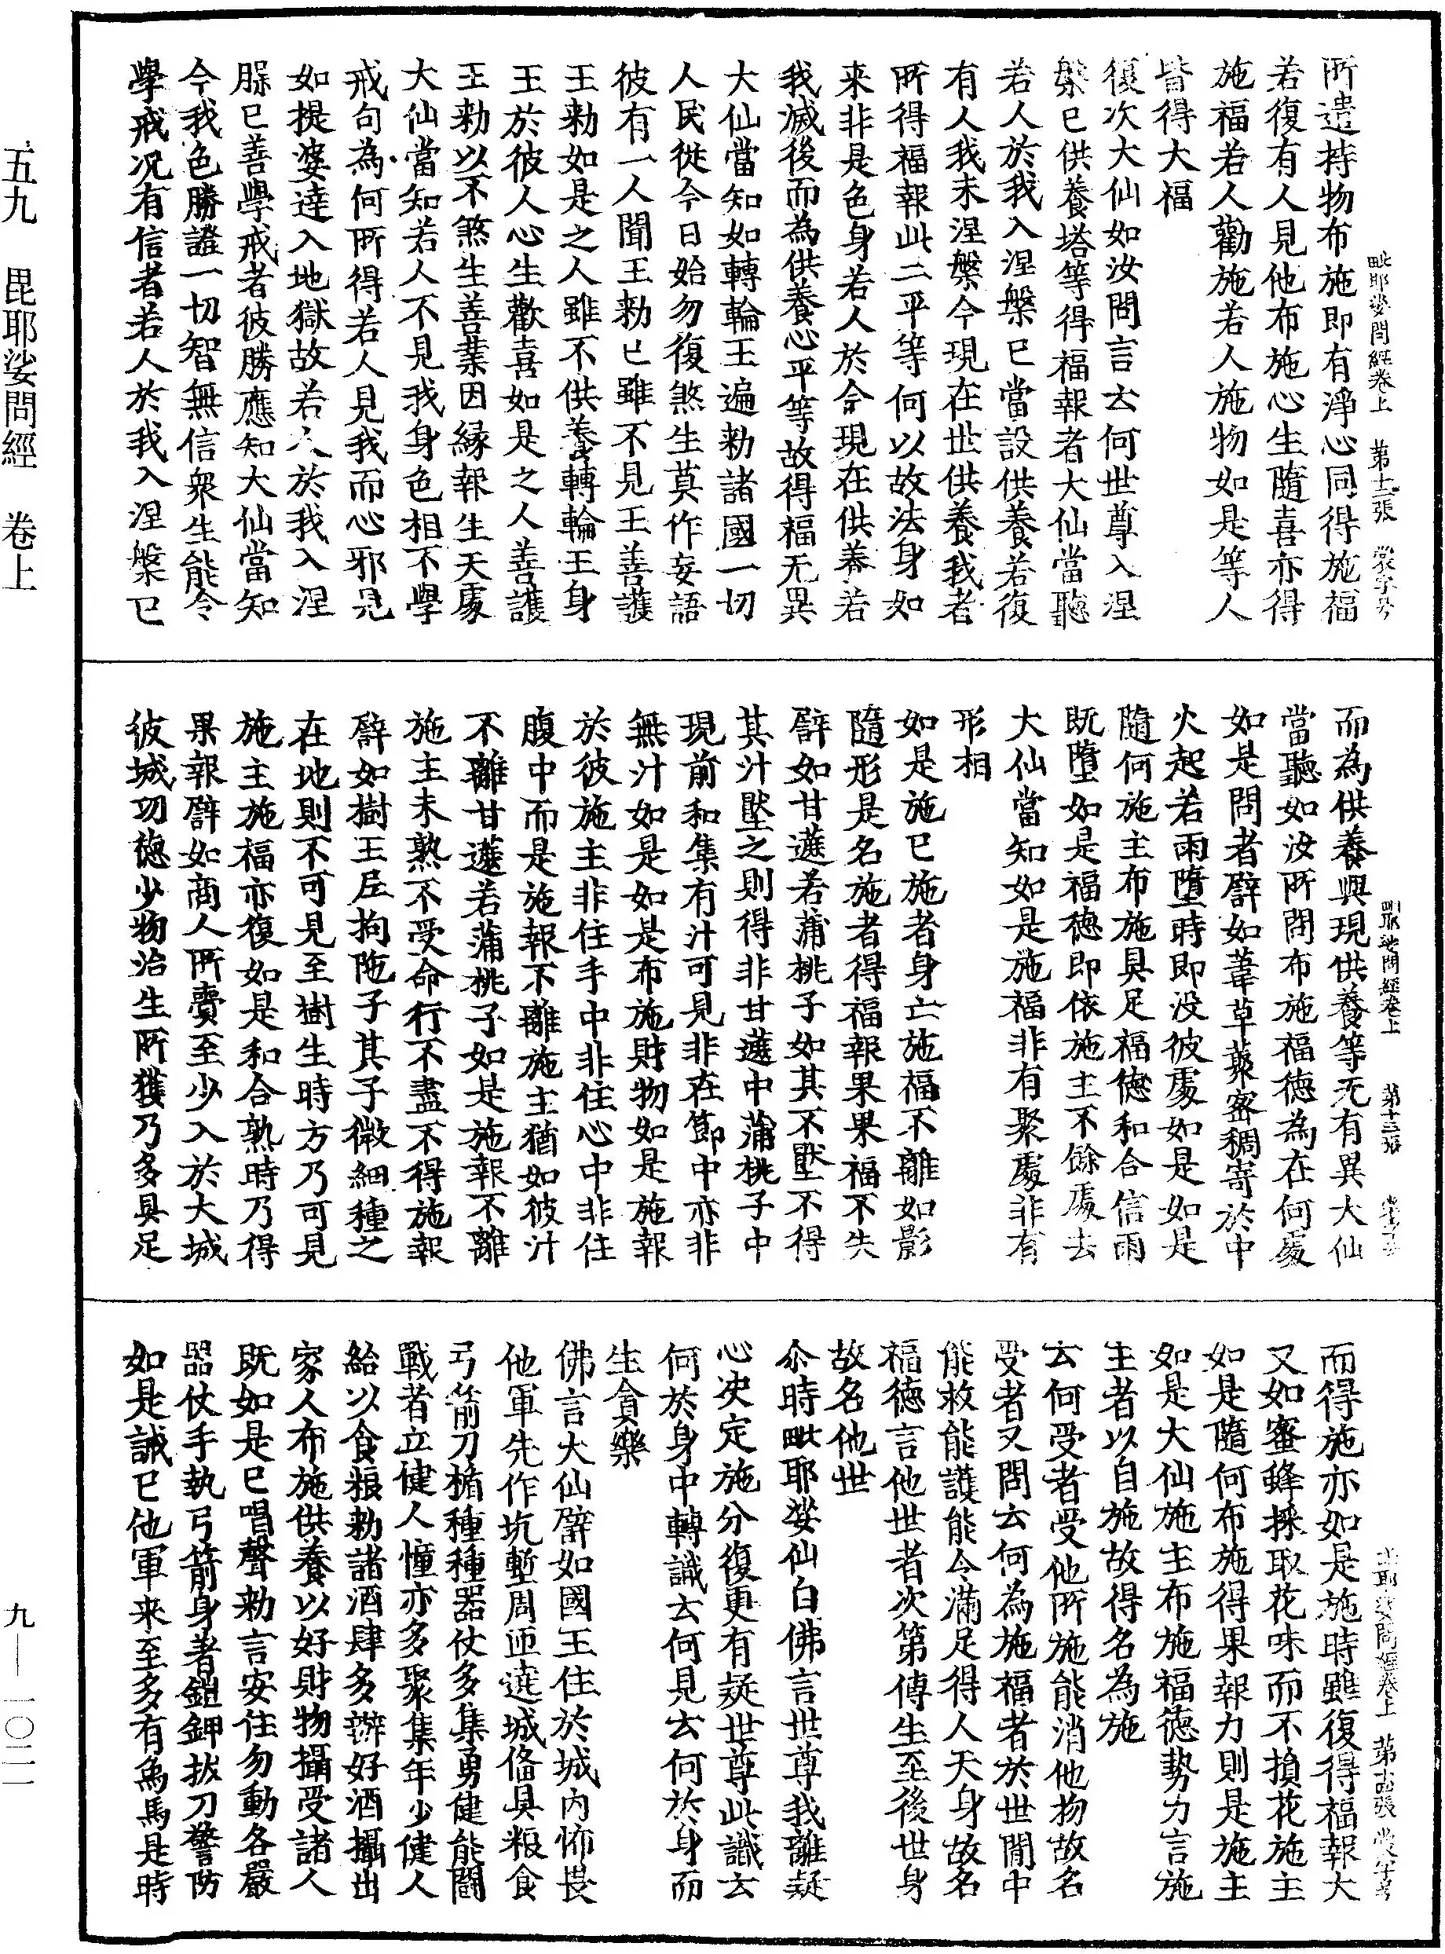 五九　毘耶娑問經　卷上
九—一〇二一
毗耶娑問經卷上　第十二張　裳字号
所遣持物布施即有淨心同得施福
若復有人見他布施心生隨喜亦得
施福若人勸施若人施物如是等人
皆得大福
復次大仙如汝問言云何世尊入涅
槃已供養塔等得福報者大仙當聽
若人於我入涅槃已當設供養若復
有人我未涅槃今現在世供養我者
所得福報此二平等何以故法身如
来非是色身若人於今現在供養若
我滅後而為供養心平等故得福无異
大仙當知如轉輪王遍勑諸國一切
人民従今日始勿復煞生莫作妄語
彼有一人聞王勑已雖不見王善護
王勑如是之人雖不供養轉輪王身
王於彼人心生歡喜如是之人善護
王勑以不煞生善業因緣報生天處
大仙當知若人不見我身色相不學
戒句為何所得若人見我而心邪見
如提婆達入地獄故若人於我入涅
槃已善學戒者彼勝應知大仙當知
今我色勝證一切智無信衆生能令
學戒況有信者若人於我入涅槃已
毗耶娑問經卷上　第十三張
而為供養與現供養等无有異大仙
當聽如汝所問布施福德為在何處
如是問者譬如葦草藂密稠寄於中
火起若雨墮時即没彼處如是如是
隨何施主布施具足福德和合信雨
既墮如是福德即依施主不餘處去
大仙當知如是施福非有聚處非有
形相
如是施已施者身亡施福不離如影
隨形是名施者得福報果果福不失
譬如甘蔗若蒲桃子如其不壓不得
其汁壓之則得非甘蔗中蒲桃子中
現前和集有汁可見非在節中亦非
無汁如是如是布施財物如是施報
於彼施主非住手中非住心中非住
腹中而是施報不離施主猶如彼汁
不離甘蔗若蒲桃子如是施報不離
施主未熟不受命行不盡不得施報
譬如樹王尼拘陁子其子微細種之
在地則不可見至樹生時方乃可見
施主施福亦復如是和合熟時乃得
果報譬如商人所賣至少入於大城
彼城功德少物治生所獲乃多具足
耶娑問經卷上　第十四張　裳字号
而得施亦如是施時雖復得福報大
又如蜜蜂採取花味而不損花施主
如是隨何布施得果報力則是施主
如是大仙施主布施福德勢力言施
主者以自施故得名為施
云何受者受他所施能消他物故名
受者又問云何為施福者於世閒中
能救能護能令滿足得人天身故名
福德言他世者次第傳生至後世身
故名他世
尒時毗耶娑仙白佛言世尊我離疑
心决定施分復更有疑世尊此識云
何於身中轉識云何見云何於身而
生貪樂
佛言大仙譬如國王住於城内怖畏
他軍先作坑塹周迊遶城俻具粮食
弓箭刀楯種種器仗多集勇健能鬪
戰者立健人幢亦多聚集年少健人
給以食粮勑諸酒肆多辦好酒攝出
家人布施供養以好財物攝受諸人
既如是已唱聲勑言安住勿動各嚴
器仗手執弓箭身著鎧鉀拔刀警防
如是誡已他軍来至多有象馬是時